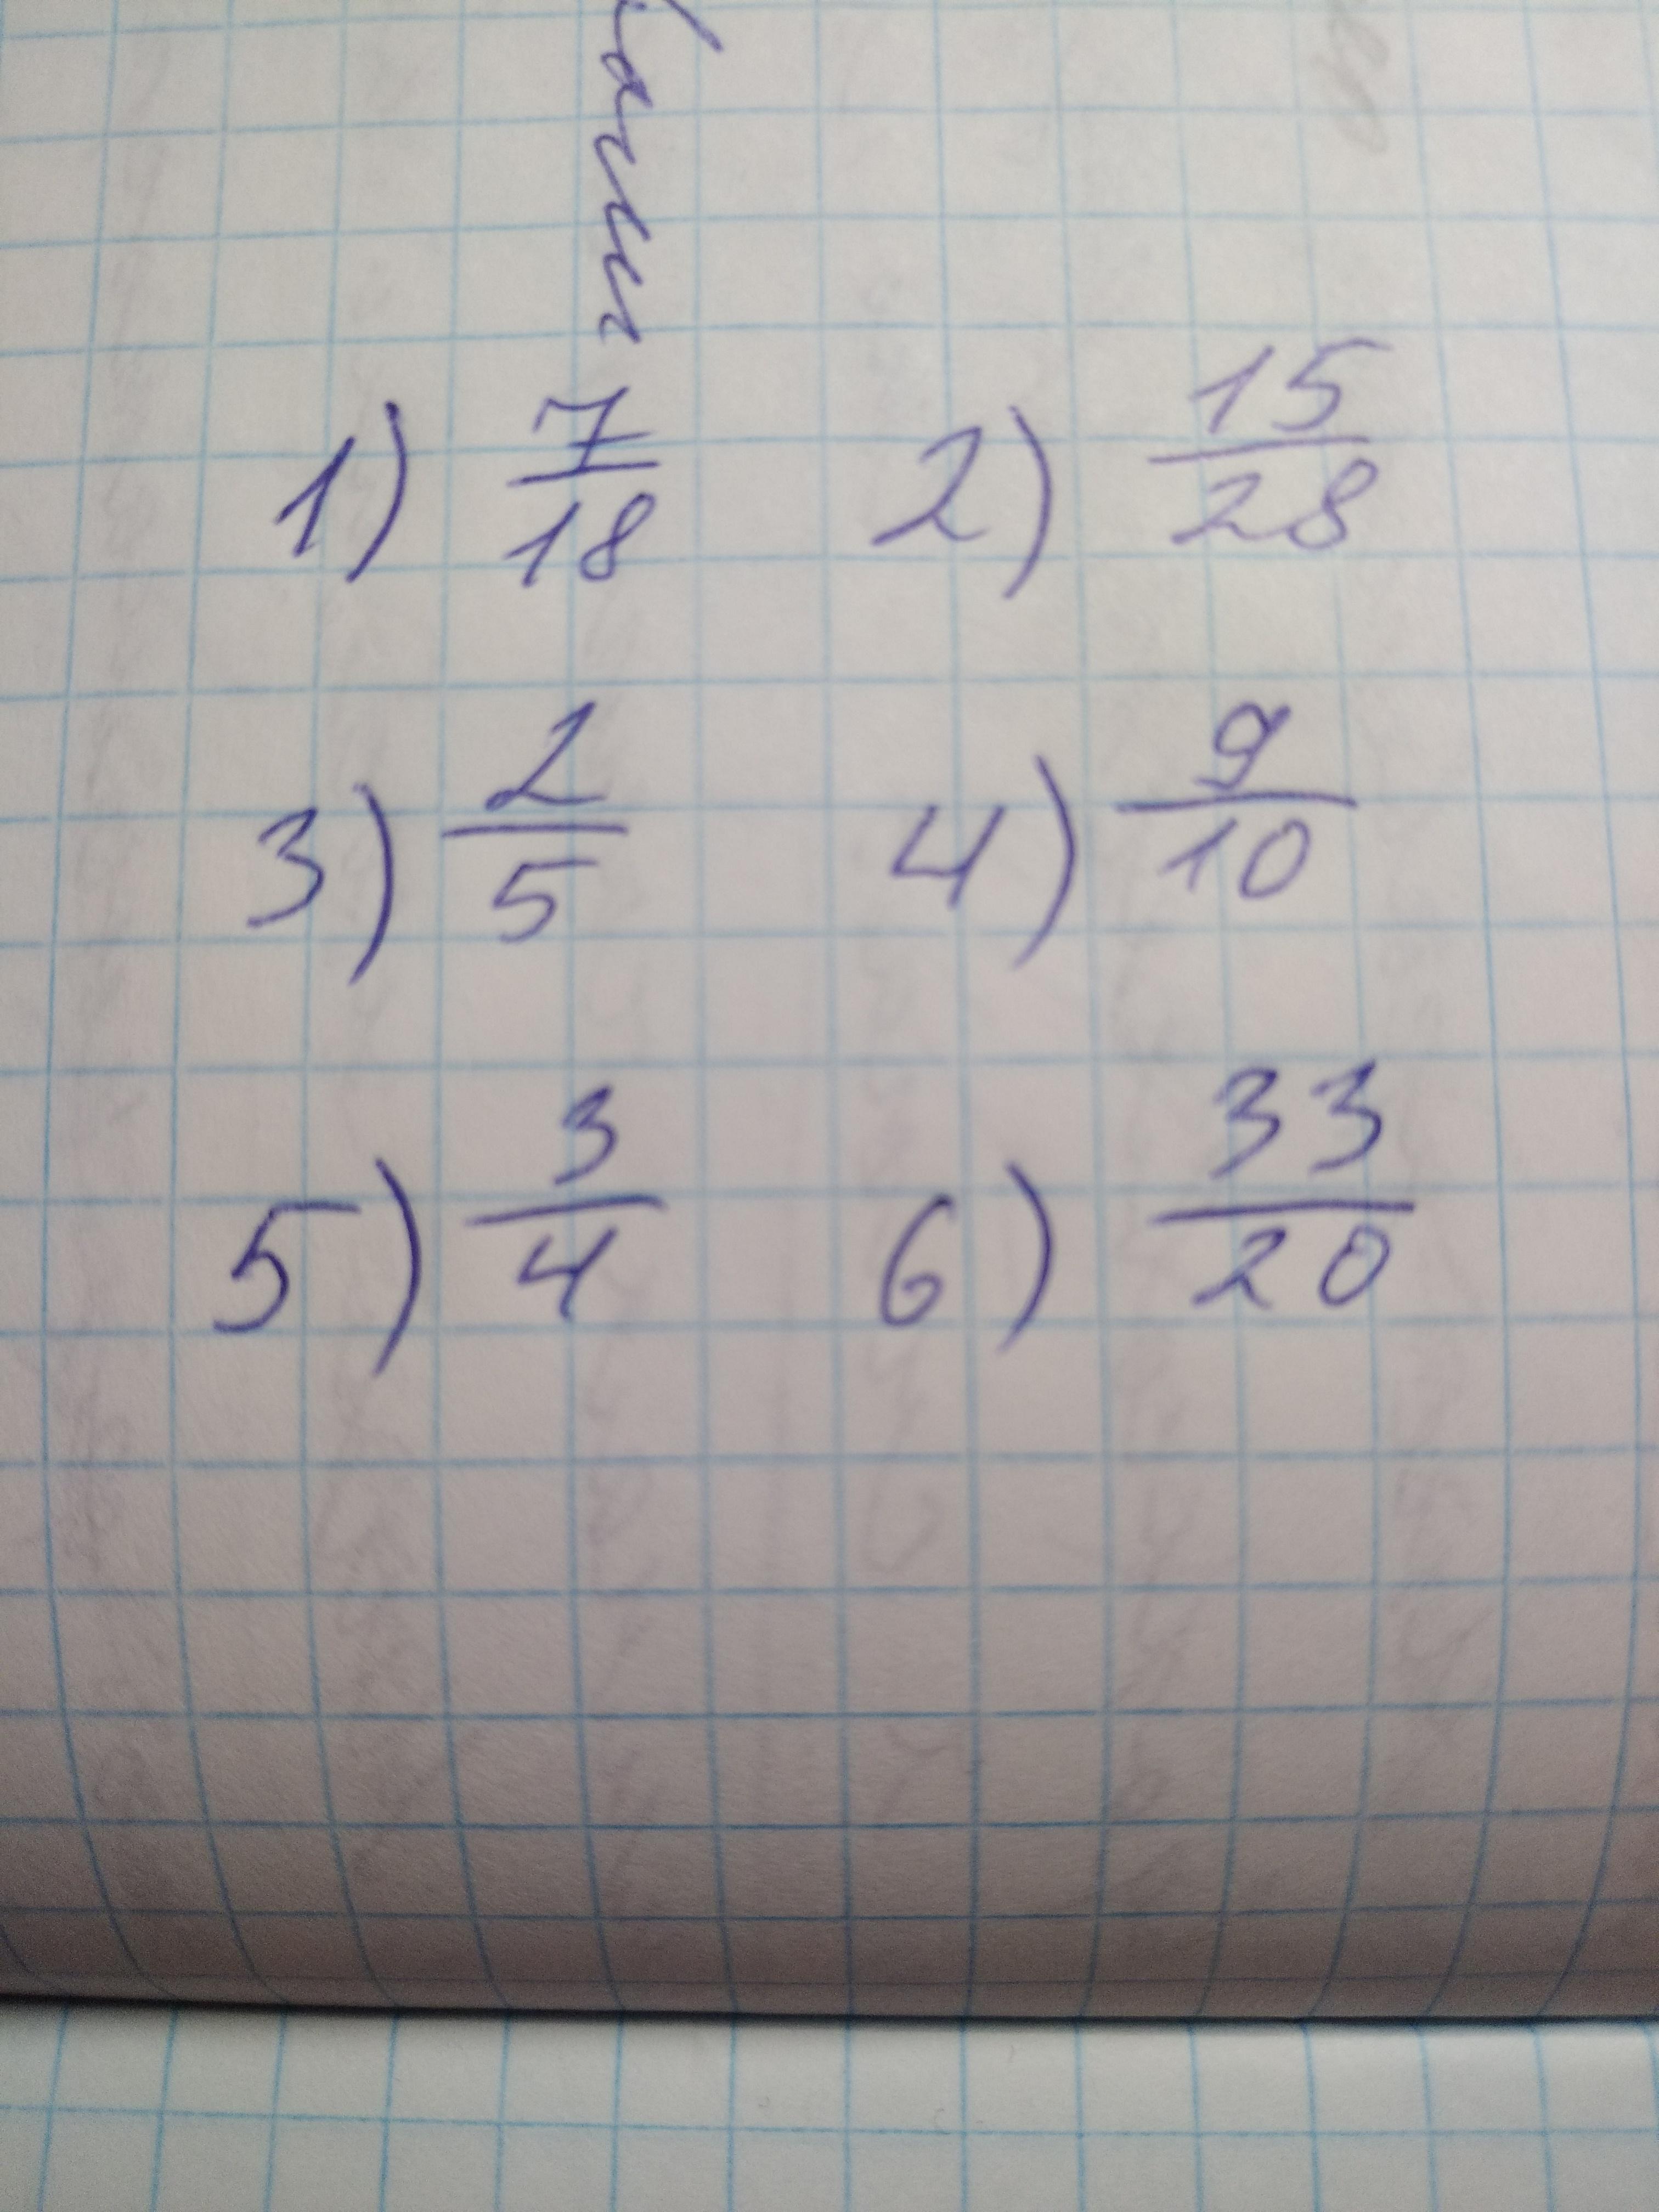 1) 7/18 2) 15/28
3) 2/5 4) 9/10
5) 3/4 6) 33/20